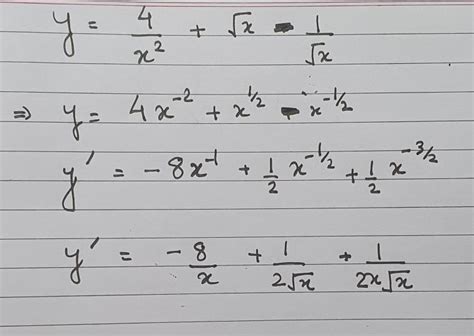 y = 4/x² + √x - 1/√x
⇒ y = 4x⁻² + x^(1/2) - x^(-1/2)
y′ = -8x⁻¹ + 1/2 x^(-1/2) + 1/2 x^(-3/2)
y′ = -8/x + 1/(2√x) + 1/(2x√x)